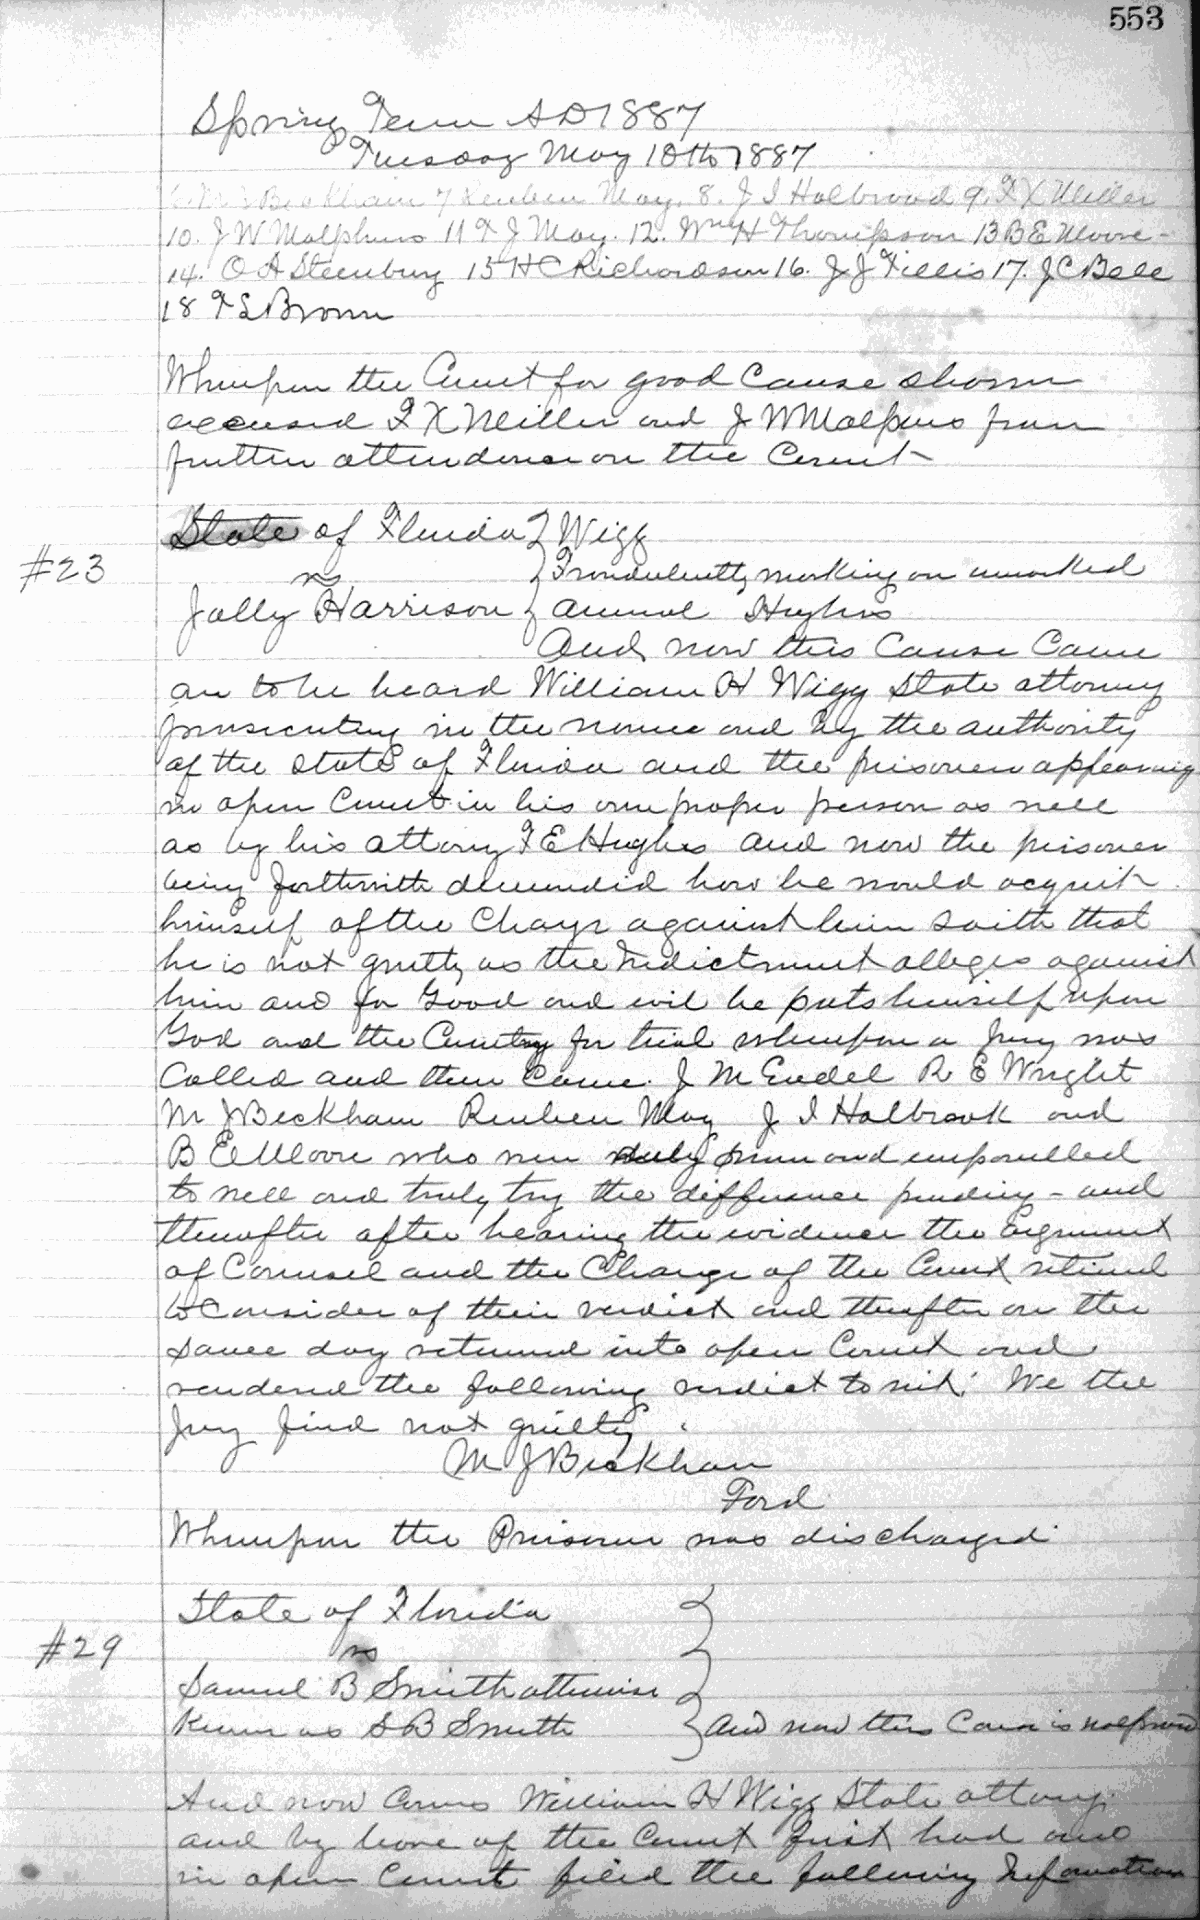 553
Spring Term AD 1887
Tuesday May 10th 1887
6. M J Beckham 7 Reuben May. 8. J I Holbrook 9. F X Miller
10. J W Malphurs 11 F J May. 12. Wm H Thompson 13 B E Moore
14. O A Steenburg 15 H C Richardson 16. J J Fillis 17. J C Bell
18 T S Brown
Whereupon the Court for good Cause shown
excused F X Miller and J W Malphurs from
further attendance on the Court
State of Florida } Wigg
#23
vs } Fraudulently marking an unmarked
Jolly Harrison } animal Hughes
And now this Cause Came
on to be heard William H Wigg State attorney
prosecuting in the name and by the authority
of the State of Florida and the prisoner appearing
in open Court in his own proper person as well
as by his attorny F E Hughes and now the prisoner
being forthwith demanded how he would acquit
himself of the Charge against him saith that
he is not guilty as the Indictment alleges against
him and for Good and evil he puts himself upon
God and the Country for trial whereupon a Jury was
Called and then Came. J M Endel R E Wright
M J Beckham Reuben May J I Holbrook and
B E Moore who were duly sworn and empanelled
to well and truly try the difference pending - and
thereafter after hearing the evidence the argument
of Counsel and the Charge of the Court retired
to Consider of their verdict and thereafter on the
same day returned into open Court and
rendered the following verdict to wit: We the
Jury find not guilty.
M J Beckham
Ford
Whereupon the Prisoner was discharged
State of Florida
#29
vs
Samuel B Smith otherwise
Known as S B Smith } and now this Cause is nolprosed
And now Comes William H Wigg State attorny
and by leave of the Court first had and
in open Court filed the following Information